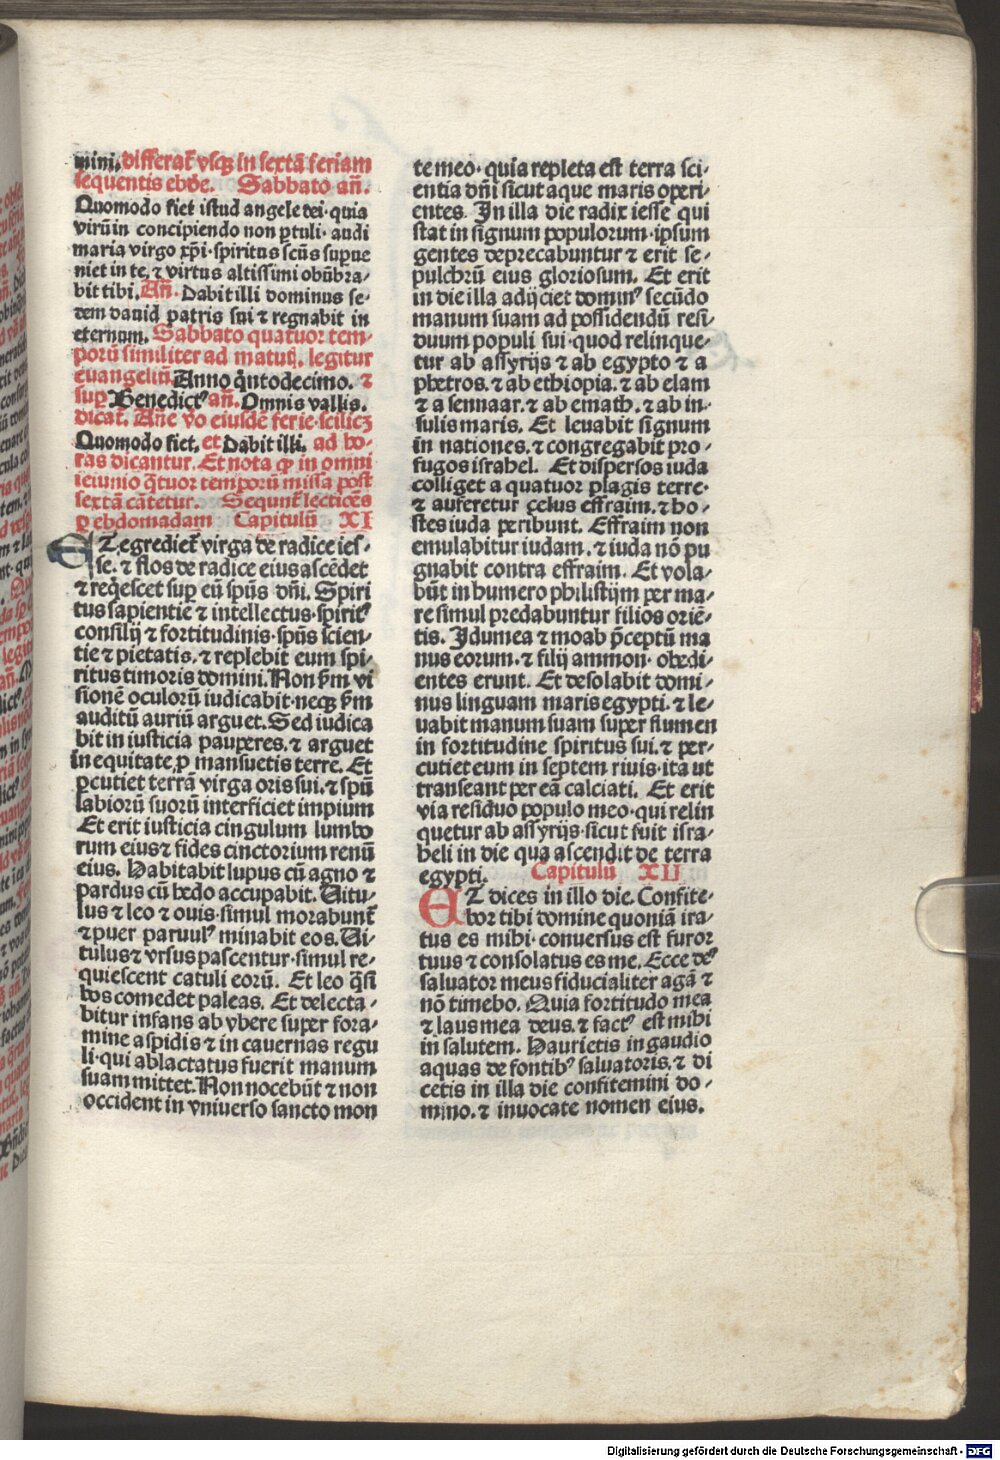 mini. differat᷑ vsqꝫ in sextā feriam
sequentis ebde. Sabbato añ.
Quomodo fiet istud angele dei·quia
virū in concipiendo non ꝑtuli· audi
maria virgo xp̄i·spiritus scūs supue
niet in te. ⁊ virtus altissimi obūbra⸗
bit tibi. Añ. Dabit illi dominus se⸗
dem dauid patris sui ⁊ regnabit in
eternum. Sabbato quatuor tem⸗
porū similiter ad matutī. legitur
euangeliū. Anno q̄ntodecimo. ⁊
suꝑ Benedictꝰ añ. Omnis vallis.
dicat᷑. Añe v̄o eiusdē ferie·scilicꝫ
Quomodo fiet. et Dabit illi. ad ho⸗
ras dicantur. Et nota ꝙ in omni
ieiunio q̄tuor temporū missa post
sextā cātetur. Sequnt᷑ lectiões
ꝑ ebdomadam Capitulū XI
ET egrediet᷑ virga de radice ies⸗
se. ⁊ flos de radice eius ascēdet
⁊ reqͥescet suꝑ eū spūs dñi. Spiri
tus sapientie ⁊ intellectus·spiritꝰ
consilij ⁊ fortitudinis·spūs scien⸗
tie ⁊ pietatis. ⁊ replebit eum spi⸗
ritus timoris domini. Non ẜm vi
sionē oculorū iudicabit·neqꝫ ẜm
auditū auriū arguet. Sed iudica
bit in iusticia pauperes. ⁊ arguet
in equitate ꝓ mansuetis terre. Et
ꝑcutiet terrā virga oris sui. ⁊ spū
labiorū suorū interficiet impium
Et erit iusticia cingulum lumbo
rum eius ⁊ fides cinctorium renū
eius. Habitabit lupus cū agno ⁊
pardus cū hedo accupabit. Uitu⸗
lus ⁊ leo ⁊ ouis·simul morabunt᷑
⁊ puer paruulꝰ minabit eos. Ui⸗
tulus ⁊ vrsus pascentur·simul re⸗
quiescent catuli eorū. Et leo q̄si
bos comedet paleas. Et delecta⸗
bitur infans ab vbere super fora⸗
mine aspidis ⁊ in cauernas regu
li·qui ablactatus fuerit manum
suam mittet. Non nocebūt ⁊ non
occident in vniuerso sancto mon
te meo· quia repleta est terra sci⸗
entia dñi sicut aque maris operi⸗
entes. In illa die radix iesse qui
stat in signum populorum·ipsum
gentes deprecabuntur ⁊ erit se⸗
pulchrū eius gloriosum. Et erit
in die illa adijciet dominꝰ secūdo
manum suam ad possidendū resi⸗
duum populi sui·quod relinque⸗
tur ab assyrijs ⁊ ab egypto ⁊ a
phetros. ⁊ ab ethiopia. ⁊ ab elam
⁊ a sennaar. ⁊ ab emath. ⁊ ab in⸗
sulis maris. Et leuabit signum
in nationes. ⁊ congregabit pro⸗
fugos israhel. Et dispersos iuda
colliget a quatuor plagis terre·
⁊ auferetur çelus effraim. ⁊ ho⸗
stes iuda peribunt. Effraim non
emulabitur iudam. ⁊ iuda nō pu
gnabit contra effraim. Et vola⸗
būt in humero philistijm per ma⸗
re simul predabuntur filios oriē⸗
tis. Idumea ⁊ moab p̄ceptū ma
nus eorum. ⁊ filij ammon· obedi⸗
entes erunt. Et desolabit domi⸗
nus linguam maris egypti. ⁊ le⸗
uabit manum suam super flumen
in fortitudine spiritus sui. ⁊ per⸗
cutiet eum in septem riuis·ita ut
transeant per eā calciati. Et erit
via residuo populo meo·qui relin
quetur ab assyrijs·sicut fuit isra⸗
heli in die qua ascendit de terra
egypti. Capitulū XII
ET dices in illo die. Confite⸗
bor tibi domine quoniā ira⸗
tus es mihi· conuersus est furor
tuus ⁊ consolatus es me. Ecce deꝰ
saluator meus fiducialiter agā ⁊
nō timebo. Quia fortitudo mea
⁊ laus mea deus. ⁊ factꝰ est mihi
in salutem. Haurietis in gaudio
aquas de fontibꝰ saluatoris. ⁊ di
cetis in illa die confitemini do⸗
mino. ⁊ inuocate nomen eius.
Digitalisierung gefördert durch die Deutsche Forschungsgemeinschaft - DFG